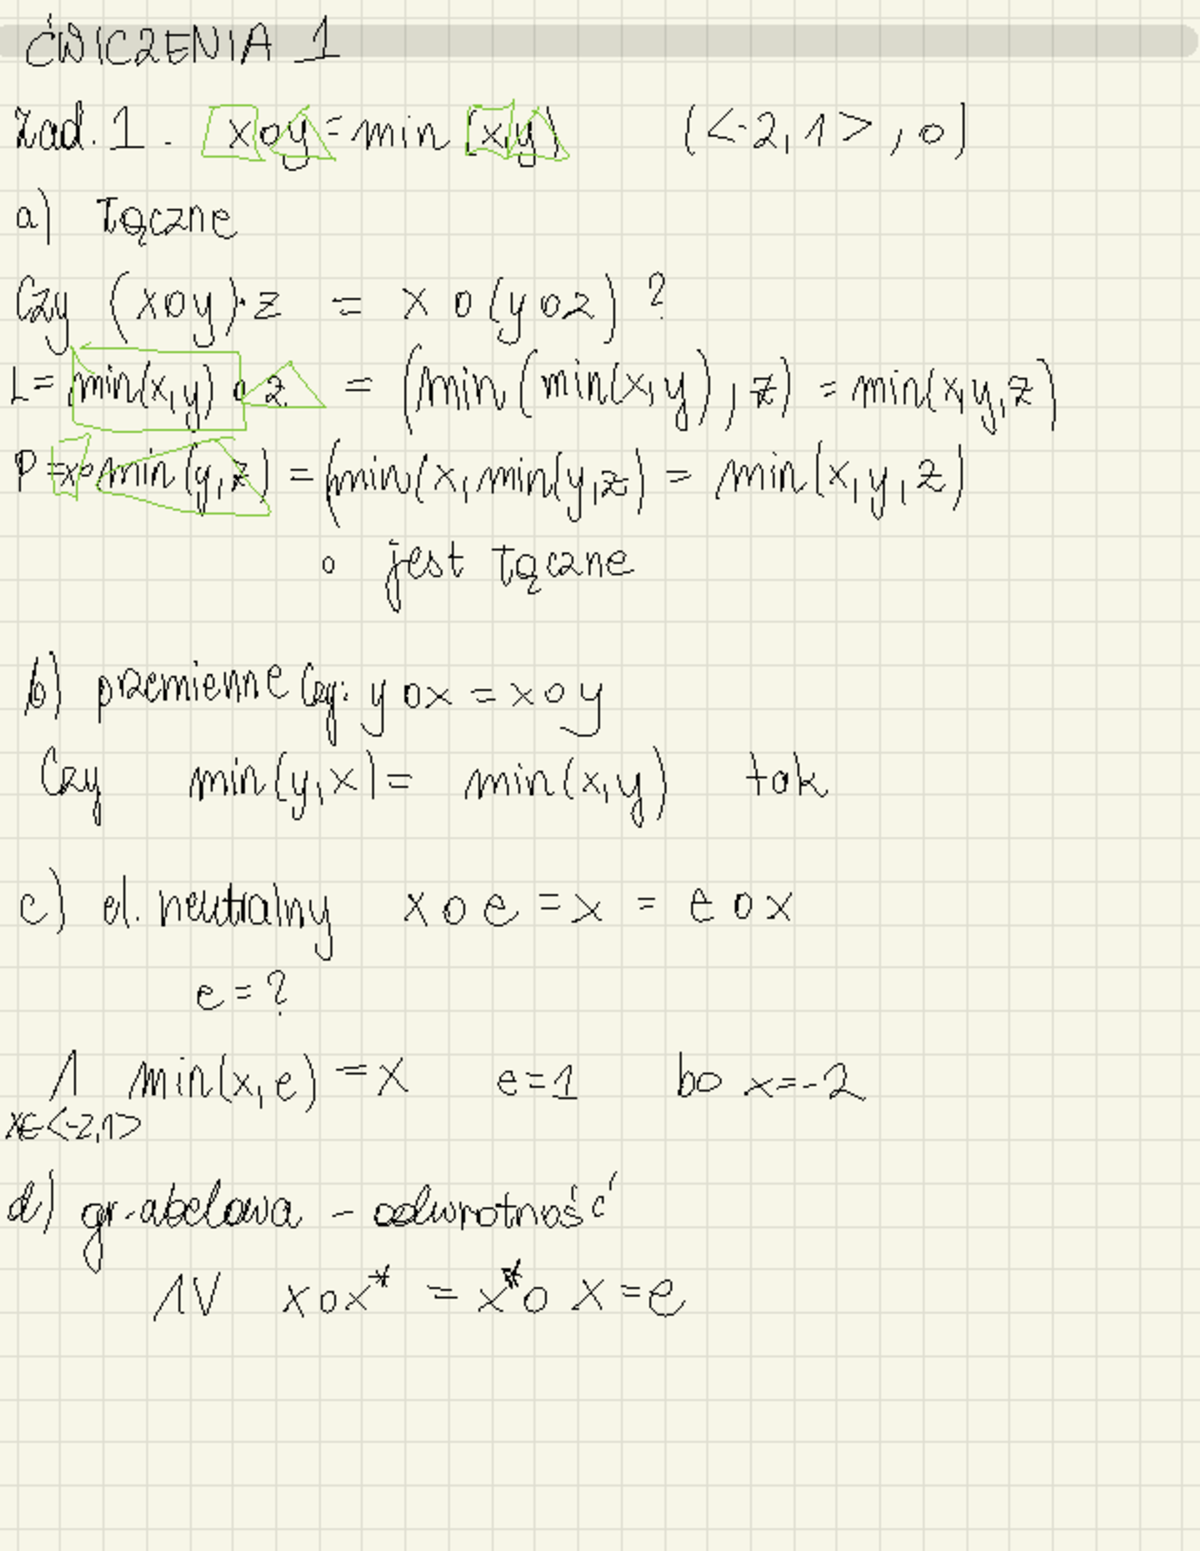 ĆWICZENIA 1
Zad. 1. x∘y = min (x,y) (<-2,1>, ∘)
a) łączne
Czy (x∘y)∘z = x∘(y∘z) ?
L = min(x,y) ∘ z = (min(min(x,y), z) = min(x,y,z)
P = x∘min(y,z) = (min(x, min(y,z) = min(x,y,z)
∘ jest łączne
b) przemienne Czy: y∘x = x∘y
Czy min(y,x) = min(x,y) tak
c) el. neutralny x∘e = x = e∘x
e = ?
Λ min(x,e) = x e=1 bo x=-2
x∈<-2,1>
d) gr. abelowa - odwrotność
ΛV x∘x* = x*∘x = e